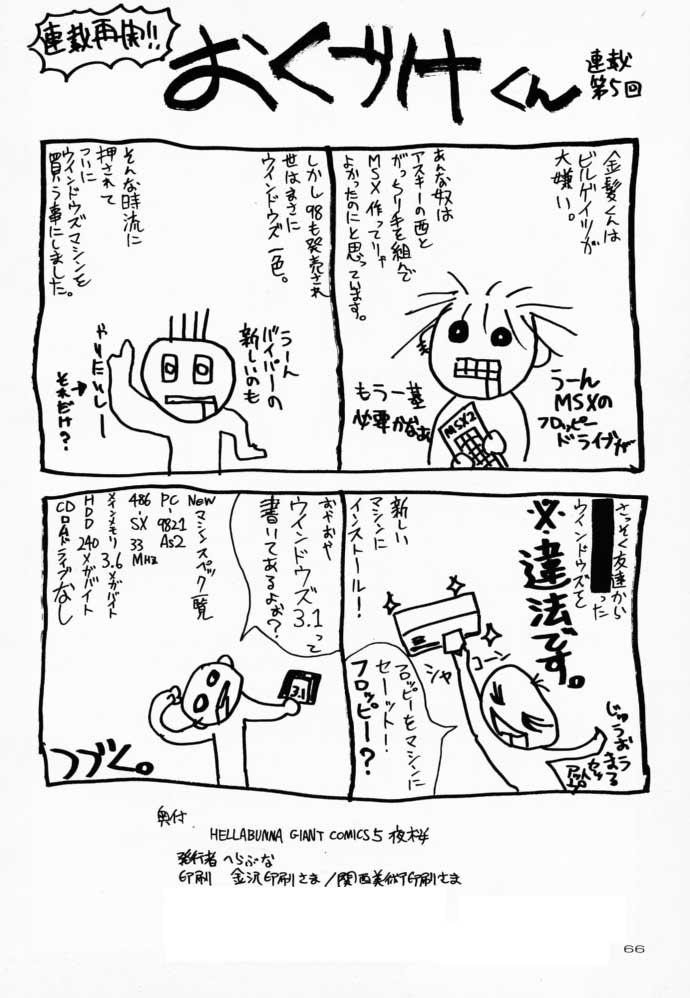 連載再開!!
おくづけくん
連載
第5回
金髪くんは
ビルゲイツが
大嫌い。
あんな奴は
アスキーの西と
がっちり手を組んで
MSX作ってりゃ
よかったのにと思っています。
うーん
MSXの
フロッピー
ドライブが
もう一基
必要かなぁ
MSX2
しかし98も発売され
世はまさに
ウインドウズ一色。
そんな時流に
押されて
ついに
ウインドウズマシンを
買う事にしました。
うーん
バイパーの
新しいのも
やりたいしー
それだけ?
さっそく友達から
ウインドウズを
った
※違法です。
新しい
マシンに
インストール!
シャ
コーン
じゅうおう
まる
セッ
フロッピーをマシンに
セーット!
フロッピー?
おやおや
ウインドウズ3.1って
書いてあるよぉ?
3.1
Newマシンスペック一覧
PC-9821As2
486SX33MHz
メインメモリ3.6メガバイト
HDD240メガバイト
CDロムドライブなし
つづく。
奥付
HELLABUNNA GIANT COMICS 5 夜桜
発行者 へらぶな
印刷 金沢印刷さま/関西美術印刷さま
66